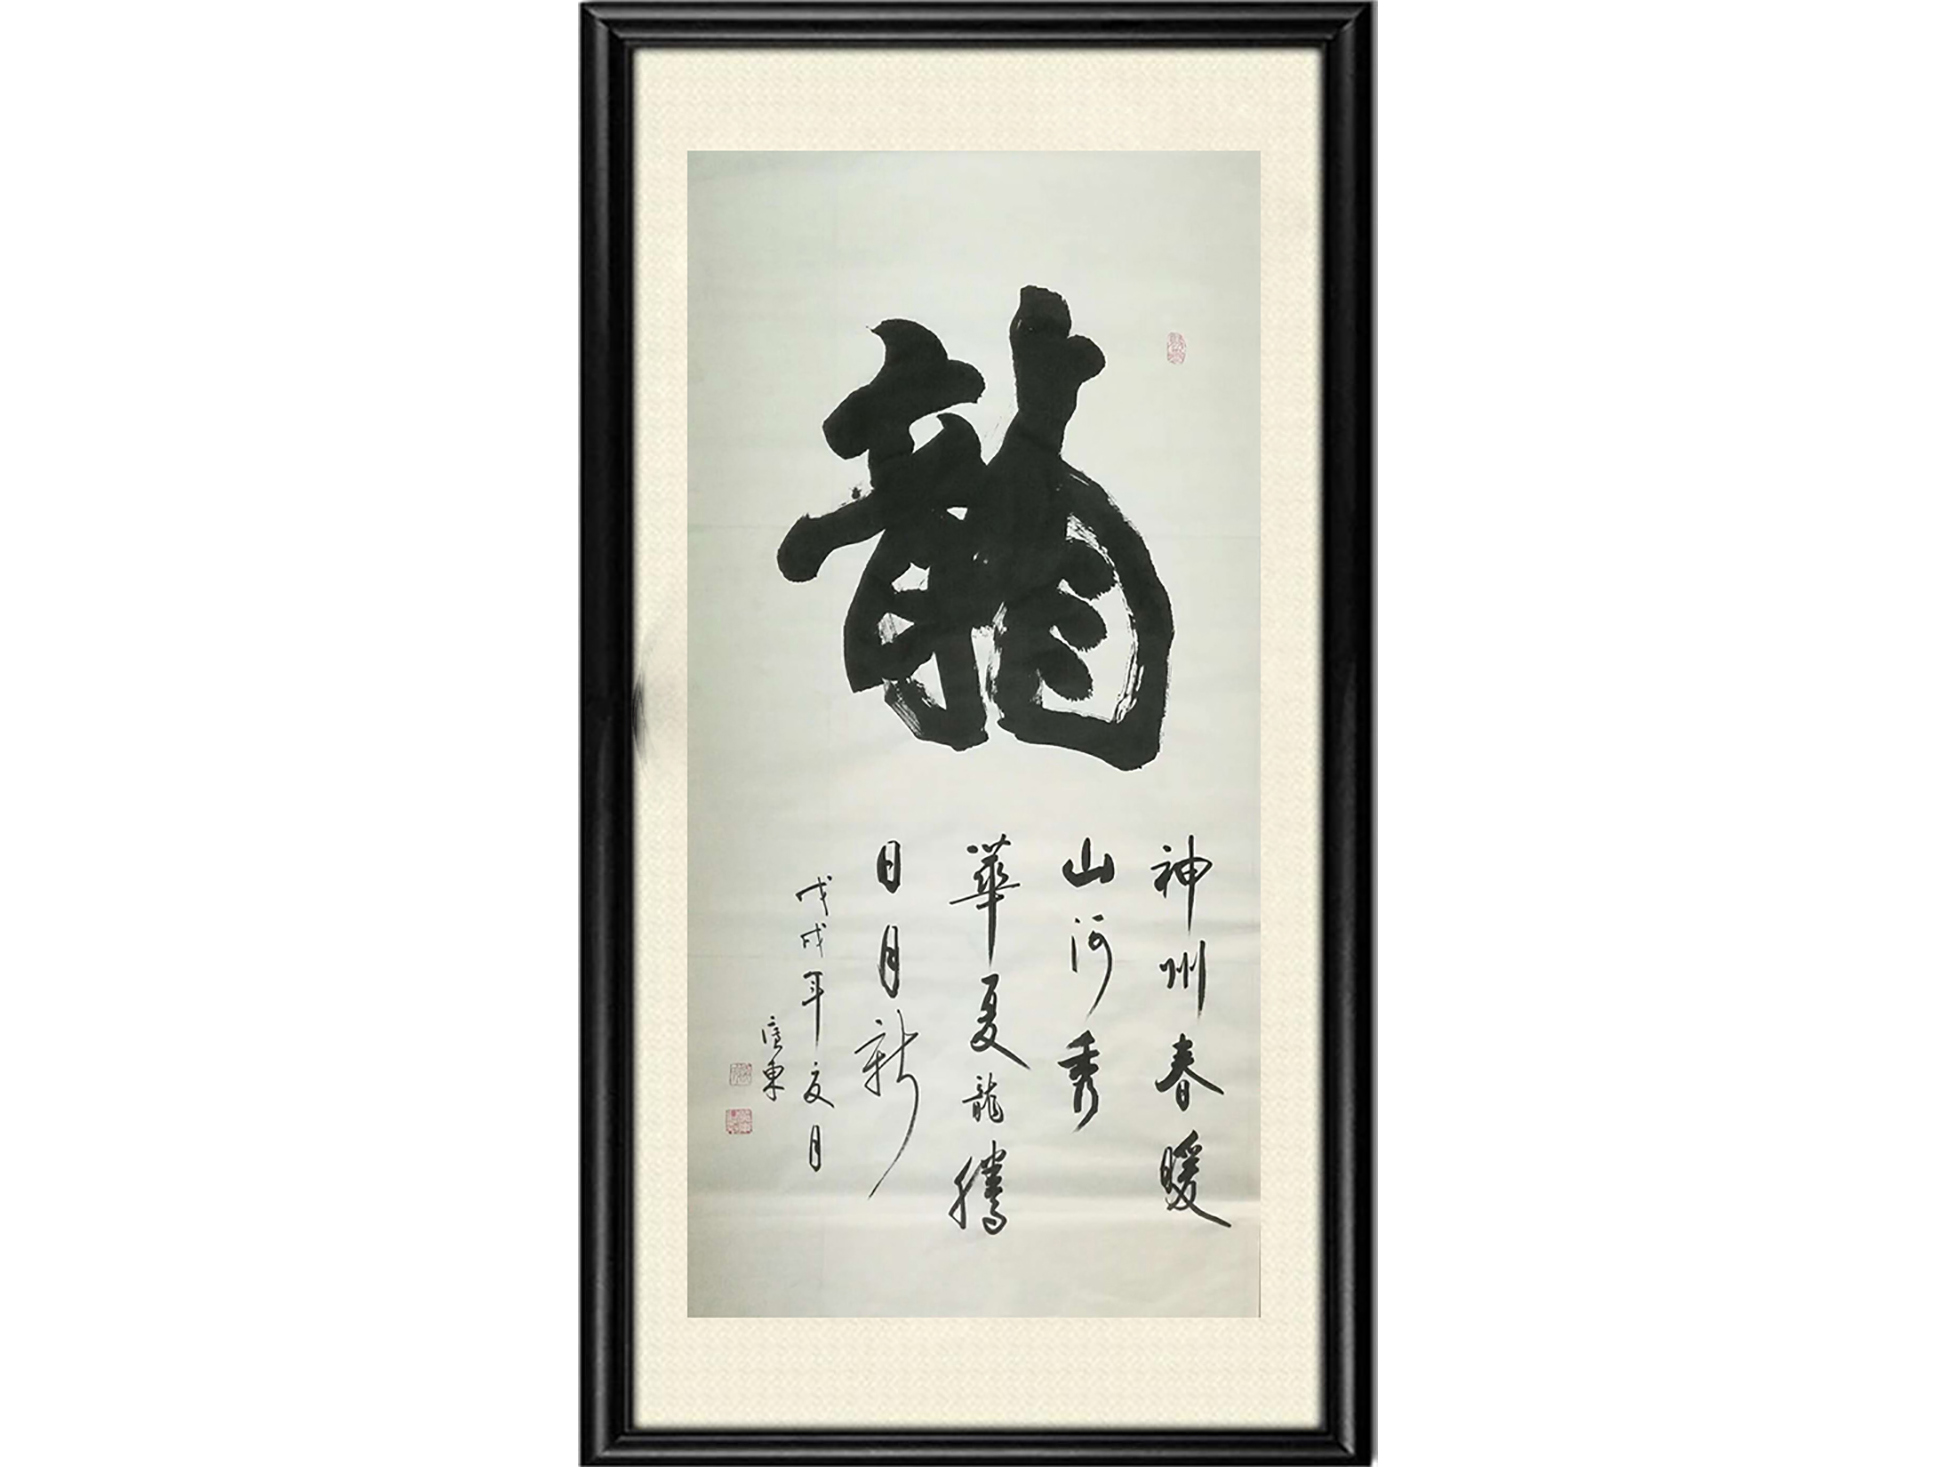 龍
神州春暖
山河秀
華夏龍騰
日月新
戊戌年夏月